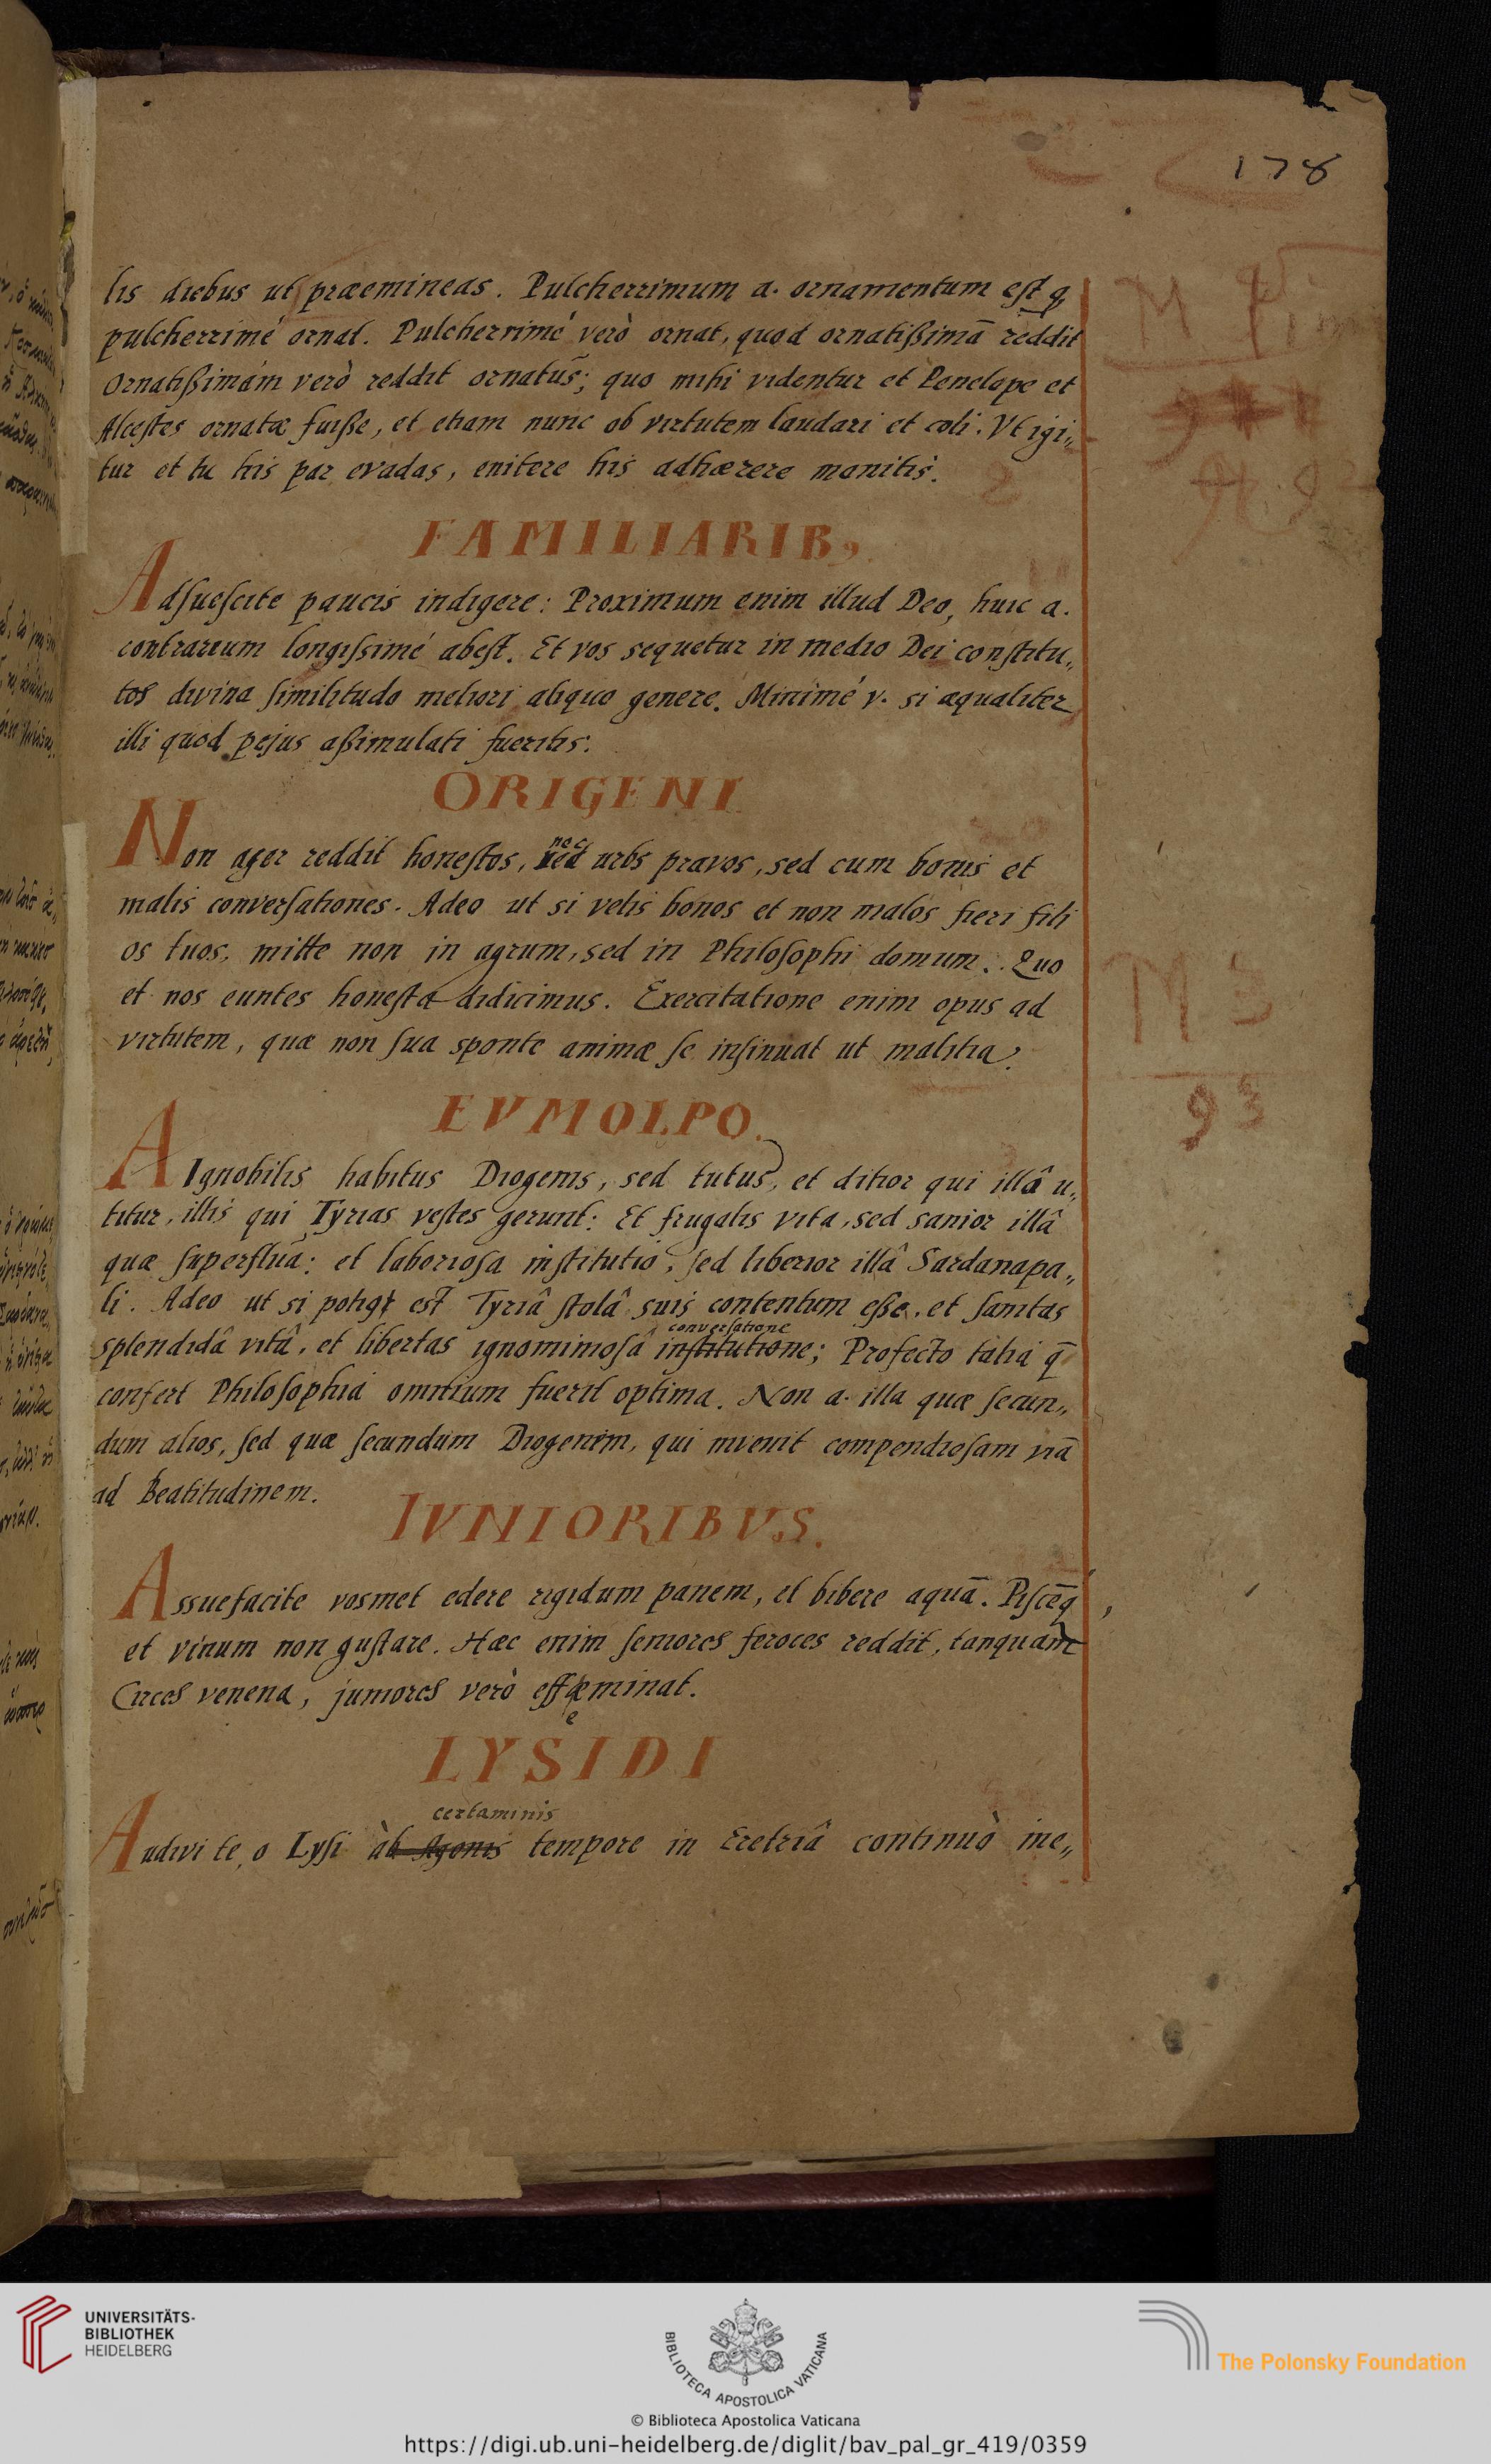 178
lis diebus ut præemineas. Pulcherrimum a. ornamentum est q
pulcherrimé ornat. Pulcherrimé verò ornat, quod ornatißimā reddit
Ornatißimam verò reddit ornatus; quo mihi videntur et Penelope et
Alcestes ornatæ fuiße, et etiam nunc ob virtutem laudari et coli. Vt igi„
tur et tu his par evadas, enitere his adhærere monitis.
FAMILIARIB,
Adsuescite paucis indigere: Proximum enim illud Deo, huic a.
contrarium longissimé abest. Et vos sequetur in medio Dei constitu„
tos divina similitudo meliori aliquo genere. Minimé v. si æqualiter
illi quod pejus aßimulati fueritis.
ORIGENI
Non ager reddit honestos, nec urbs pravos, sed cum bonis et
malis conversationes. Adeo ut si velis bonos et non malos fieri fili
os tuos, mitte non in agrum, sed in Philosophi domum. Quo
et nos euntes honesta didicimus. Exercitatione enim opus ad
virtutem, quæ non sua sponte animæ se insinuat ut malitia.
M 3
93
EVMOLPO.
A Ignobilis habitus Diogenis, sed tutus, et ditior qui illâ u„
titur, illis qui Tyrias vestes gerunt: Et frugalis vita, sed sanior illâ
quæ superflua: et laboriosa institutio, sed liberior illâ Sardanapa„
li. Adeo ut si est Tyriâ stolâ suis contentum eße, et sanitas
splendidâ vitâ, et libertas ignominiosâ institutione; Profecto talia q̄
conversatione
confert Philosophia omnium fuerit optima. Non a. illa quæ secun„
dum alios, sed quæ secundum Diogenem, qui invenit compendiosam viā
ad Beatitudinem.
IVNIORIBVS.
Assuefacite vosmet edere rigidum panem, et bibere aquā. Piscēq,
et vinum non gustare. Hæc enim seniores feroces reddit, tanquam
Circes venena, juniores verò effæminat.
e
LYSIDI
certaminis
Audivi te, o Lysi àb Agonis tempore in Eretriâ continuò ine„
UNIVERSITÄTS-
BIBLIOTHEK
HEIDELBERG
BIBLIOTECA APOSTOLICA VATICANA
The Polonsky Foundation
© Biblioteca Apostolica Vaticana
https://digi.ub.uni-heidelberg.de/diglit/bav_pal_gr_419/0359